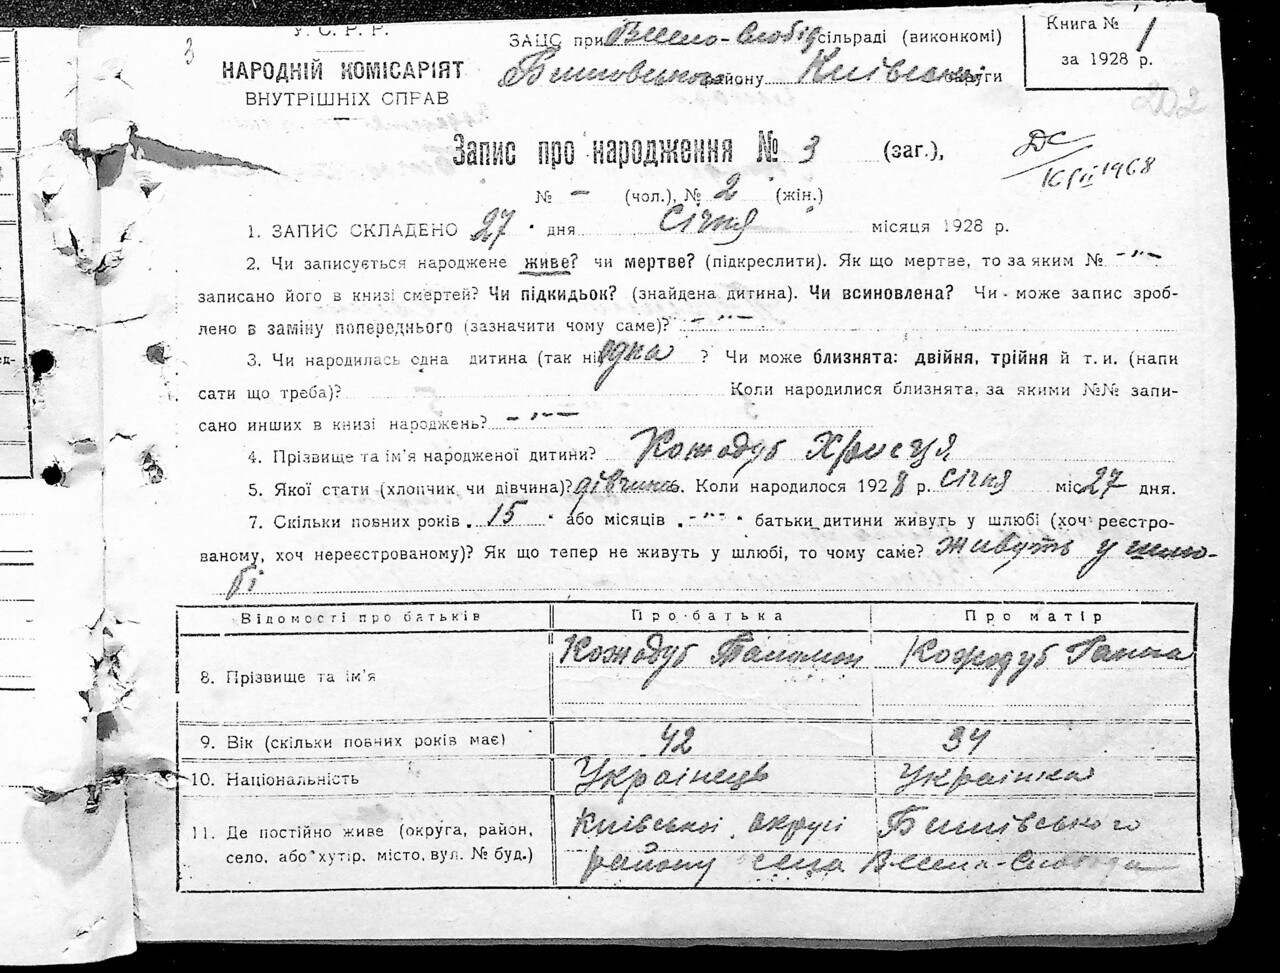 У. С. Р. Р.
НАРОДНІЙ КОМІСАРІЯТ
ВНУТРІШНІХ СПРАВ
3
ЗАЦС при Веселo-Слобід сільраді (виконкомі)
Бишовського району Київської округи
Книга № 1
за 1928 р.
Запис про народження № 3 (заг.),
№ – (чол.), № 2 (жін.)
16/II 1968
1. ЗАПИС СКЛАДЕНО 27 дня Січня місяця 1928 р.
2. Чи записується народжене живе? чи мертве? (підкреслити). Як що мертве, то за яким № –"–
записано його в книзі смертей? Чи підкидьок? (знайдена дитина). Чи всиновлена? Чи може запис зроб-
лено в заміну попереднього (зазначити чому саме)? –"–
3. Чи народилась одна дитина (так ні) одна ? Чи може близнята: двійня, трійня й т. и. (напи
сати що треба)? Коли народилися близнята, за якими №№ запи-
сано инших в книзі народжень? –"–
4. Прізвище та ім'я народженої дитини? Кожодуб Христя
5. Якої стати (хлопчик чи дівчина)? дівчина. Коли народилося 1928 р. січня міс 27 дня.
7. Скільки повних років 15 або місяців –"– батьки дитини живуть у шлюбі (хоч реєстро-
ваному, хоч нереєстрованому)? Як що тепер не живуть у шлюбі, то чому саме? живуть у шлю-
бі
Відомості про батьків Про батька Про матір
8. Прізвище та ім'я Кожодуб Паломон Кожодуб Ганна
9. Вік (скільки повних років має) 42 34
10. Національність Українець Українка
11. Де постійно живе (округа, район, Київської округи Бишівського
село, або хутір, місто, вул. № буд.) району села Весела-Слобода